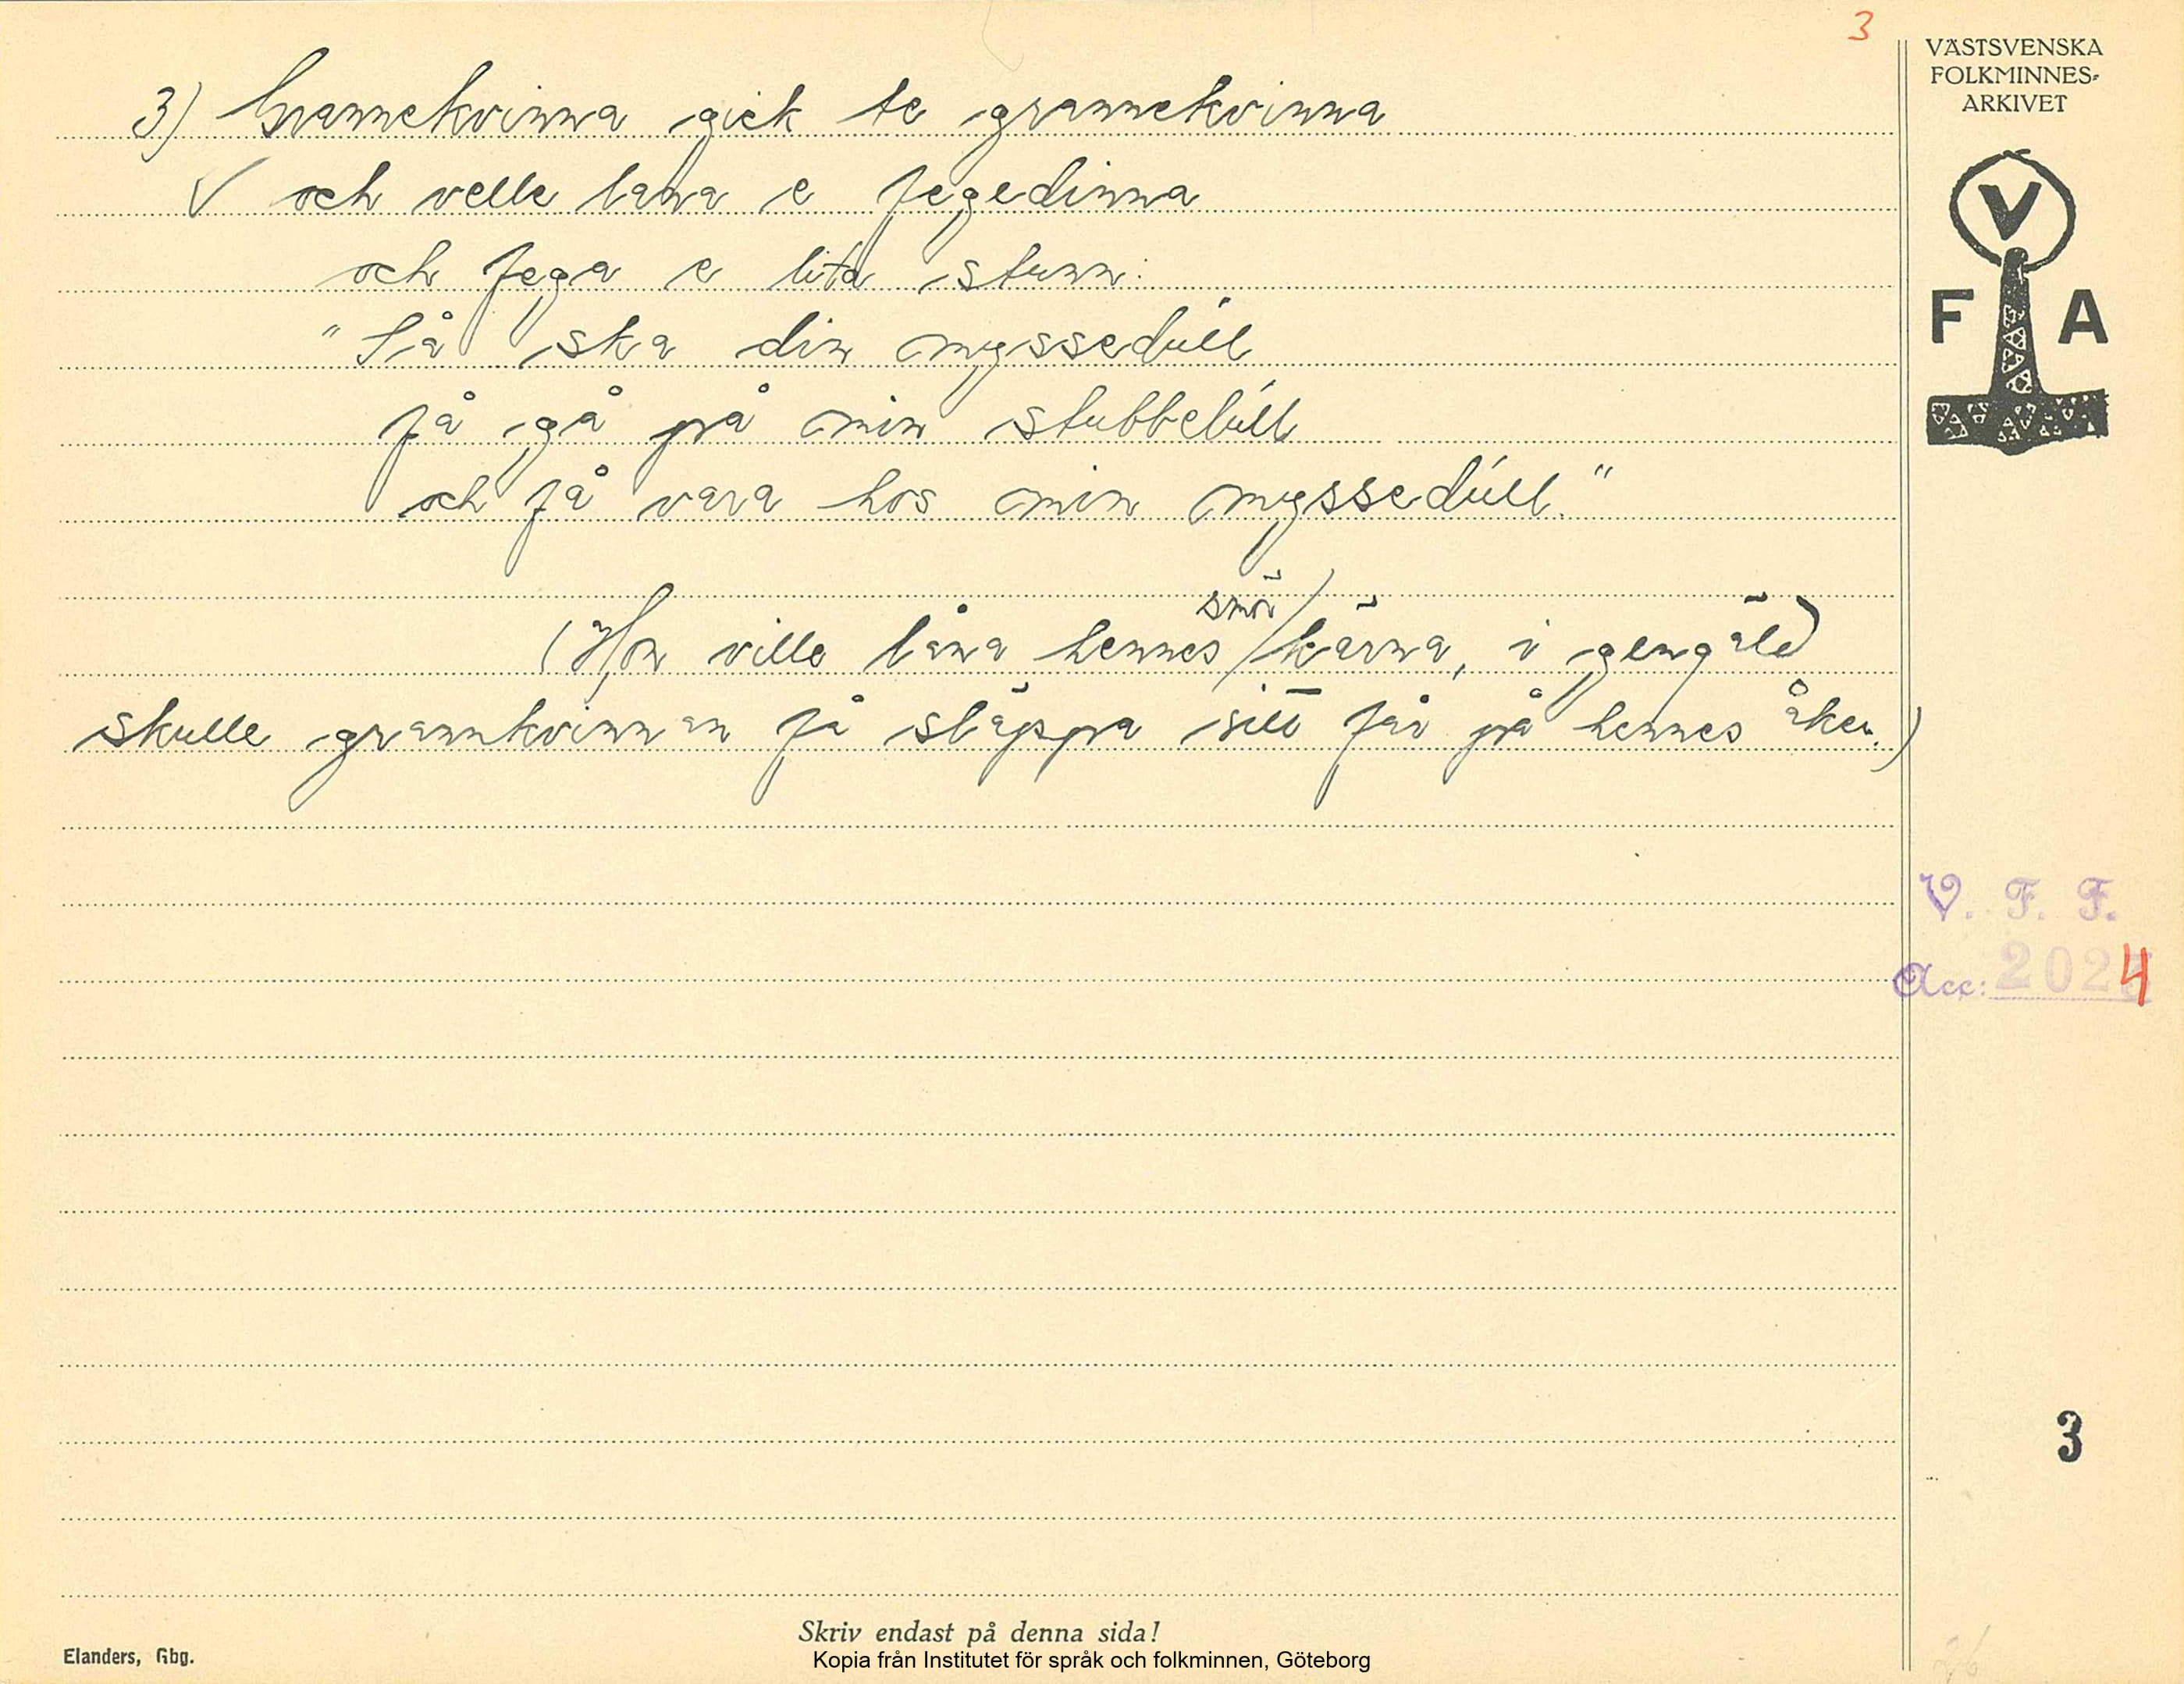 3
VÄSTSVENSKA
FOLKMINNES-
ARKIVET
V
F A
3) Grannekvinna gick te grannekvinna
V och velle lana e fegedinna
och fega e lita stunn:
"Så ska din mysseduĺl
få gå på min stubbeluĺl
och få vara hos min mysseduĺl."
(Hon ville låna hennes smör/kärna, i gengäld
skulle grannkvinnan få släppa sitt får på hennes åker.)
V. F. F.
Acc: 2024
3
Skriv endast på denna sida!
Elanders, Gbg.
Kopia från Institutet för språk och folkminnen, Göteborg